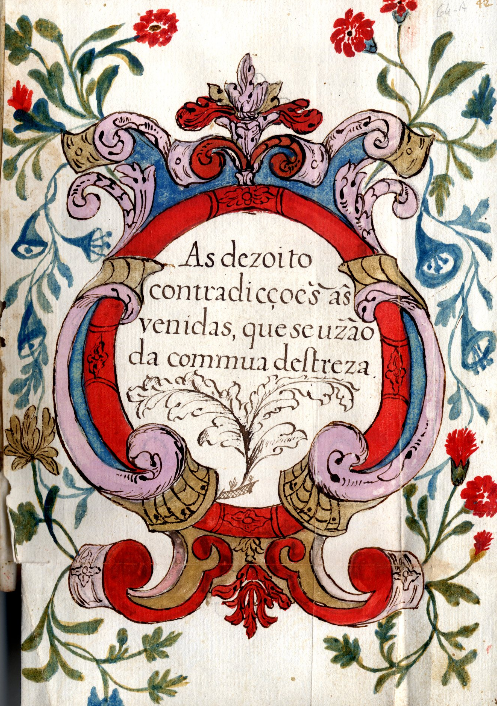 64-A 42
As dezoito
contradicçoẽs ás
venidas, que se uzaõ
da commua destreza